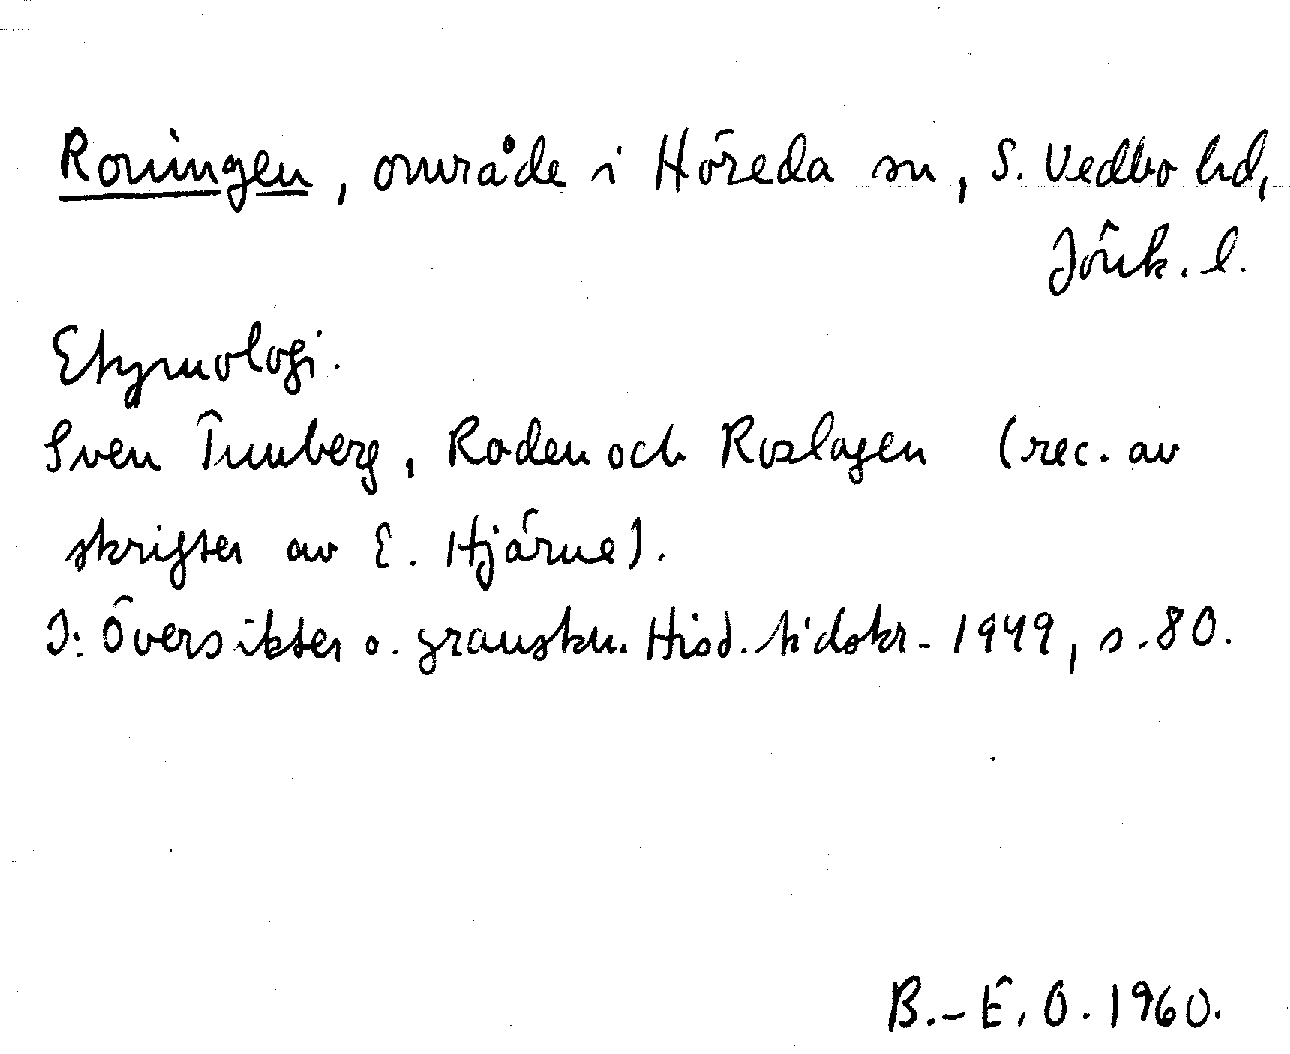 Roningen, område i Höreda sn, S. Vedbo hd,
Jönk. l.
Etymologi.
Sven Tunberg, Roden och Roslagen (rec. av
skrifter av E. Hjärne).
I: Översikter o. granskn. Hist. tidskr. 1949, s. 80.
B.-E. O. 1960.